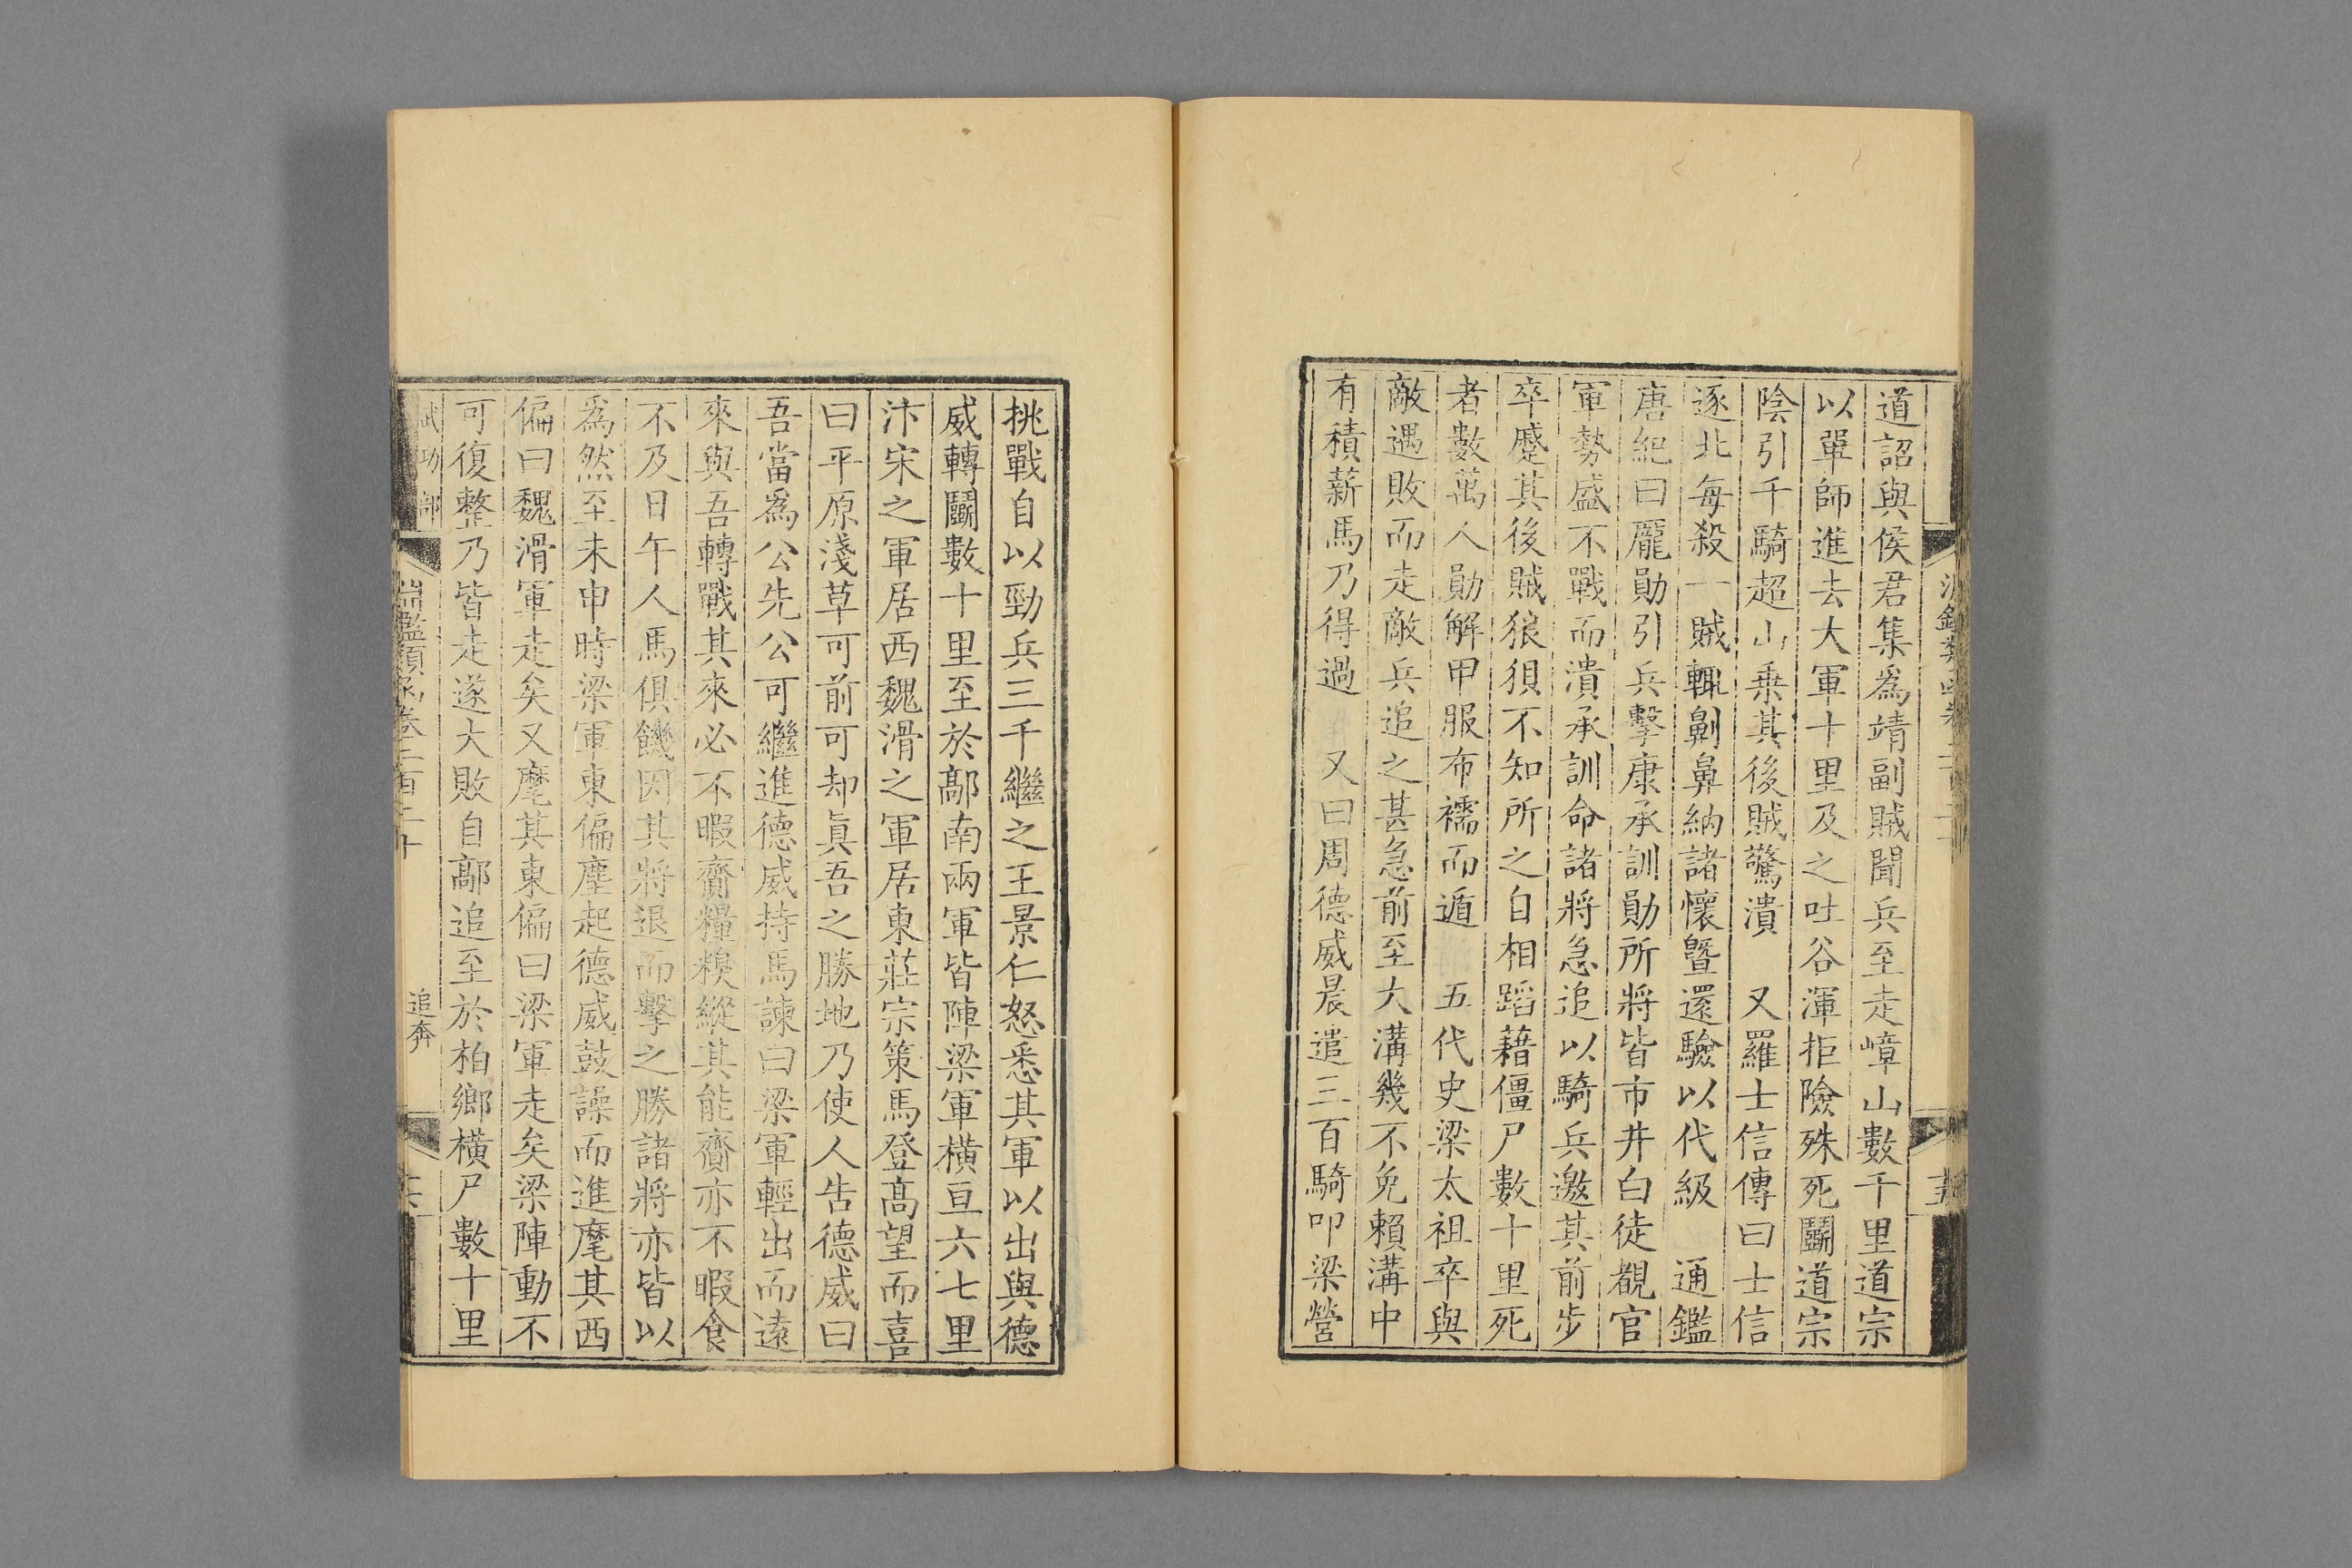 道詔與侯君集爲靖副賊聞兵至走嶂山數千里道宗
以單師進去大軍十里及之吐谷渾拒險殊死鬭道宗
陰引千騎超山乗其後賊驚潰 又羅士信傳曰士信
逐北每殺一賊輒劓鼻納諸懷曁還驗以代級 通鑑
唐紀曰龎勛引兵擊康承訓勛所將皆市井白徒覩官
軍勢盛不戰而潰承訓命諸將急追以騎兵邀其前步
卒蹙其後賊狼狽不知所之自相蹈藉僵尸數十里死
者數萬人勛解甲服布襦而遁 五代史梁太祖卒與
敵遇敗而走敵兵追之甚急前至大溝幾不免賴溝中
有積薪馬乃得過 又曰周德威晨遣三百騎叩梁營
挑戰自以勁兵三千繼之王景仁怒悉其軍以出與德
威轉鬭數十里至於鄗南兩軍皆陣梁軍橫亘六七里
汴宋之軍居西魏滑之軍居東莊宗策馬登高望而喜
曰平原淺草可前可却眞吾之勝地乃使人告德威曰
吾當爲公先公可繼進德威持馬諫曰梁軍輕出而遠
來與吾轉戰其來必不暇齎糧糗縱其能齎亦不暇食
不及日午人馬俱饑因其將退而擊之勝諸將亦皆以
爲然至未申時梁軍東偏塵起德威鼓譟而進麾其西
偏曰魏滑軍走矣又麾其東偏曰梁軍走矣梁陣動不
可復整乃皆走遂大敗自鄗追至於柏鄉橫尸數十里
武功部 淵鑑類函卷二百二十 追奔